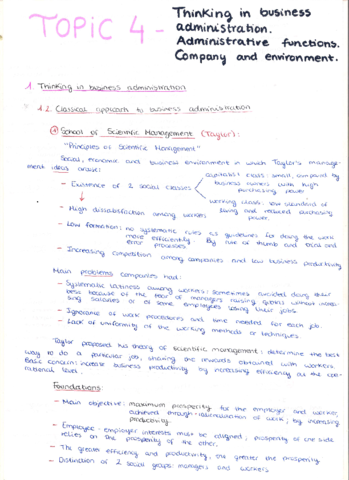 TOPIC 4 - Thinking in business
administration.
Administrative functions.
Company and environment.
1. Thinking in business administration
1.2. Classical approach to business administration
School of Scientific Management (Taylor):
"Principles of Scientific Management"
Social, economic and business environment in which Taylor's manage-
ment ideas arose:
- Existence of 2 social classes
capitalist class: small, comprised by
business owners with high
purchasing power
working class: low standard of
living and reduced purchasing
power.
- High dissatisfaction among workers
- Low formation: no systematic rules as guidelines for doing the work
more efficiently. By rule of thumb and trial and
error processes
- Increasing competition among companies and low business productivity
Main problems companies had:
- Systematic laziness among workers: sometimes avoided doing their
best because of the fear of managers raising goals without increa-
sing salaries or of some employees losing their jobs.
- Ignorance of work procedures and time needed for each job.
- Lack of uniformity of the working methods or techniques.
Taylor proposed his theory of scientific management: determine the best
way to do a particular job, sharing the rewards obtained with workers.
Basic concern: increase business productivity by increasing efficiency at the ope-
rational level.
Foundations:
- Main objective: maximum prosperity for the employer and worker,
achieved through rationalization of work, by increasing
productivity.
- Employee-employer interests must be aligned, prosperity of one side
relies on the prosperity of the other.
- The greater efficiency and productivity, the greater the prosperity
- Distinction of 2 social groups: managers and workers